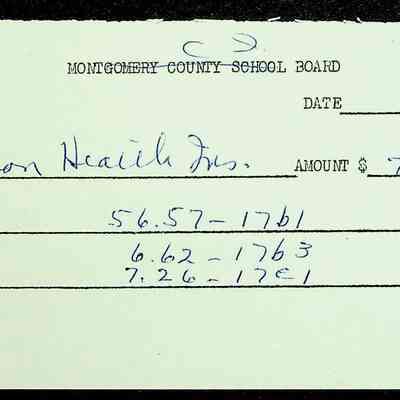 MONTGOMERY COUNTY SCHOOL BOARD
DATE
on Health Ins. AMOUNT $ 7
56.57-17b1
6.62-17b3
7.26-17c1